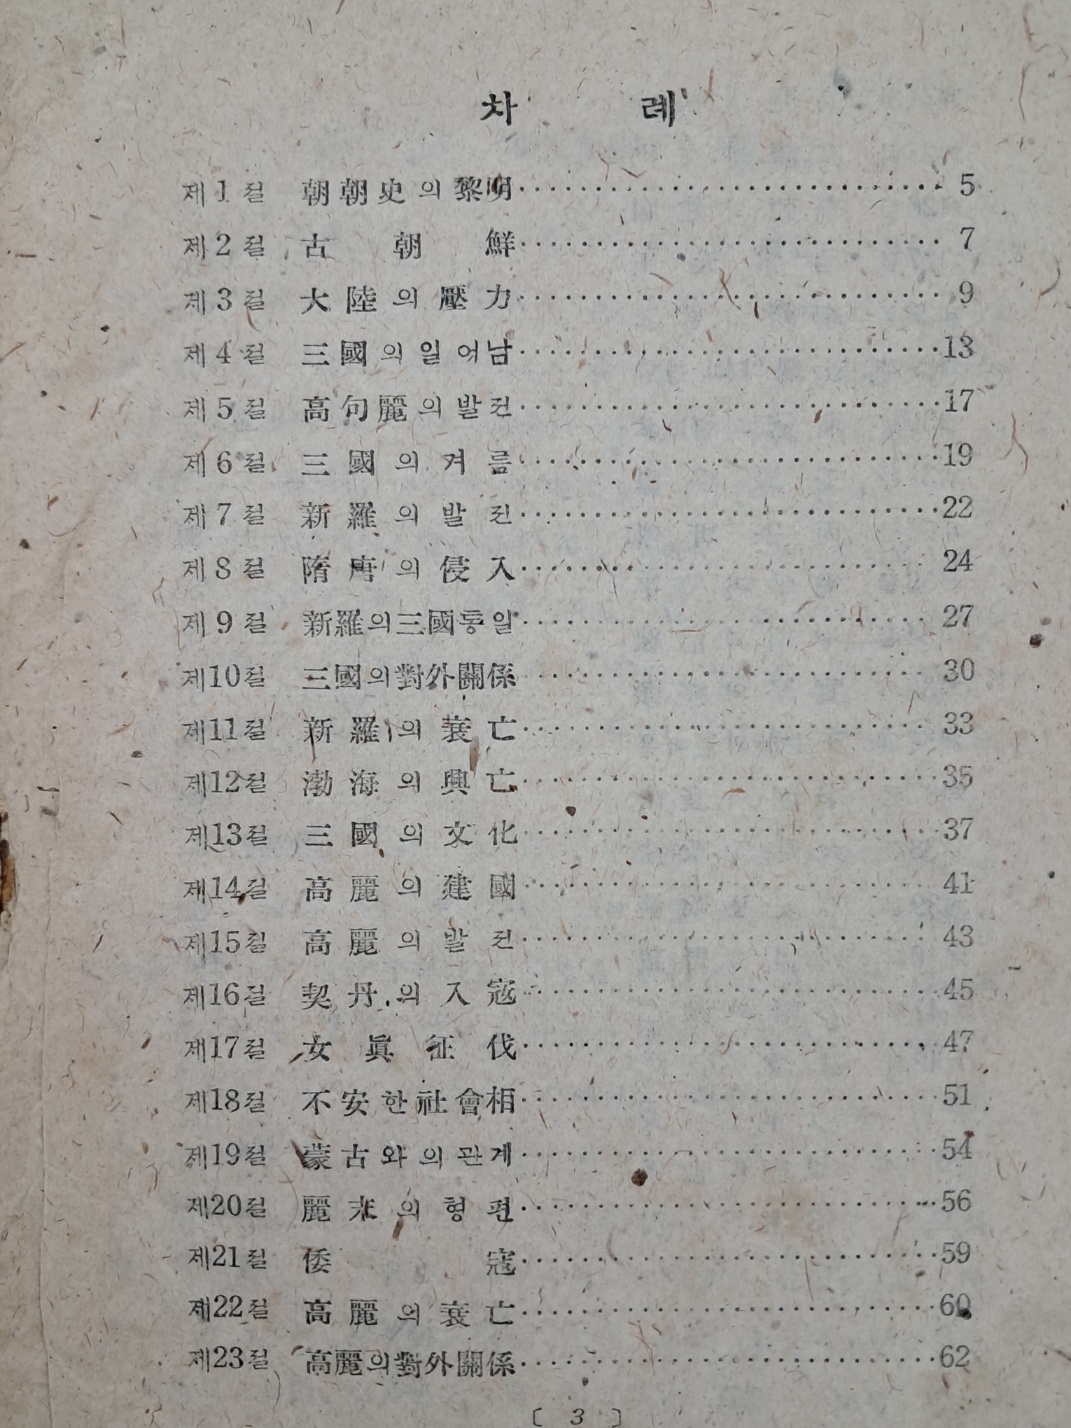 차 례
제1절 朝朝史의黎明 5
제2절 古朝鮮 7
제3절 大陸의壓力 9
제4절 三國의일어남 13
제5절 高句麗의발전 17
제6절 三國의겨름 19
제7절 新羅의발전 22
제8절 隋唐의侵入 24
제9절 新羅의三國통일 27
제10절 三國의對外關係 30
제11절 新羅의衰亡 33
제12절 渤海의興亡 35
제13절 三國의文化 37
제14절 高麗의建國 41
제15절 高麗의발전 43
제16절 契丹의入寇 45
제17절 女眞征伐 47
제18절 不安한社會相 51
제19절 蒙古와의관계 54
제20절 麗末의형편 56
제21절 倭寇 59
제22절 高麗의衰亡 60
제23절 高麗의對外關係 62
〔 3 〕